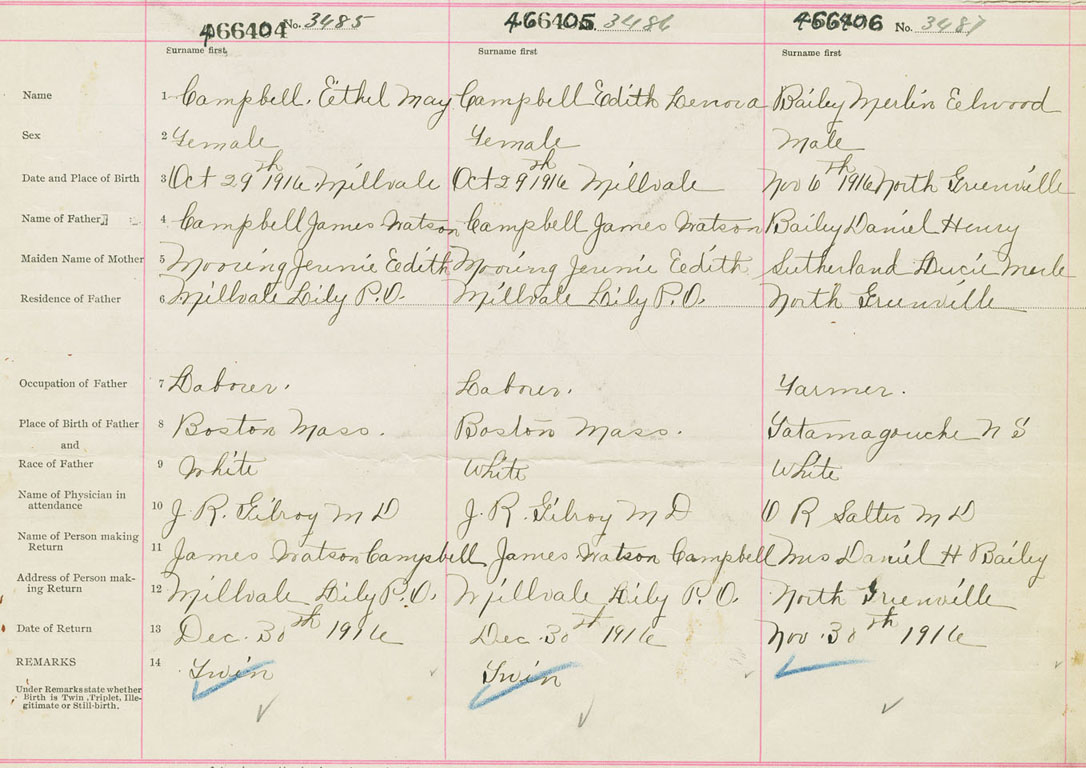 466404 No. 3485 466405 3486 466406 No. 3487
Surname first, Surname first Surname first
Name 1 Campbell, Ethel May Campbell Edith Lenora Bailey Merlin Eelwood
Sex 2 Female Female Male
Date and Place of Birth 3 Oct 29th 1916 Millvale Oct 29th 1916 Millvale Nov 6th 1916 North Greenville
Name of Father 4 Campbell James Watson Campbell James Watson Bailey Daniel Henry
Maiden Name of Mother 5 Mooring Jennie Eedith Mooring Jennie Eedith Sutherland Lucie Merle
Residence of Father 6 Millvale Lily P.O. Millvale Lily P.O. North Greenville
Occupation of Father 7 Laborer. Laborer. Farmer.
Place of Birth of Father 8 Boston Mass. Boston Mass. Tatamagouche N S
and
Race of Father 9 White White White
Name of Physician in
attendance 10 J. R. Gilroy M D J. R. Gilroy M D R Salter M D
Name of Person making
Return 11 James Watson Campbell James Watson Campbell Mrs Daniel H Bailey
Address of Person mak-
ing Return 12 Millvale Lily P.O. Millvale Lily P.O. North Greenville
Date of Return 13 Dec. 30th 1916 Dec. 30th 1916 Nov. 30th 1916
REMARKS 14 Twin Twin
Under Remarks state whether
Birth is Twin, Triplet, Ille-
gitimate or Still-birth.